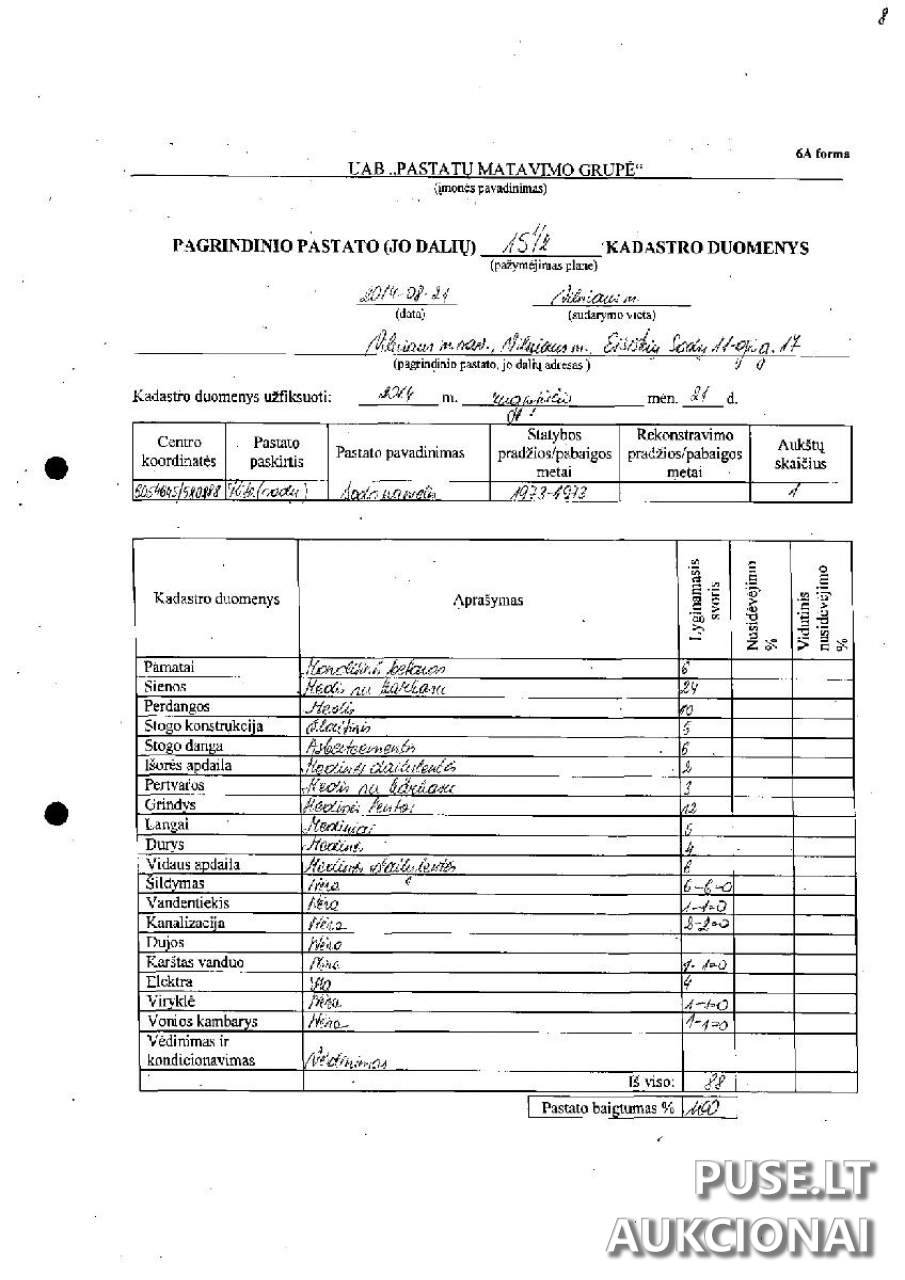 8
6A forma
UAB „PASTATŲ MATAVIMO GRUPĖ“
(įmonės pavadinimas)
PAGRINDINIO PASTATO (JO DALIŲ) KADASTRO DUOMENYS
(pažymėjimas plane)
2014-08-21 Vilniaus m.
(data) (sudarymo vieta)
Vilniaus m. sav., Vilniaus m., Eišiškių Sodų 11-oji g. 17
(pagrindinio pastato, jo dalių adresas )
Kadastro duomenys užfiksuoti: 2014 m. mėn. 21 d.
Centro koordinatės Pastato paskirtis Pastato pavadinimas Statybos pradžios/pabaigos metai Rekonstravimo pradžios/pabaigos metai Aukštų skaičius
Kita (sodų) Sodo namelis 1973-1973 1
Kadastro duomenys Aprašymas Lyginamasis svoris Nusidėvėjimo % Vidutinis nusidėvėjimo %
Pamatai betonas 6
Sienos Medis su karkasu 24
Perdangos Medis 10
Stogo konstrukcija Šlaitinis 5
Stogo danga Asbestcementis 6
Išorės apdaila Medinės dailylentės 2
Pertvaros Medis su karkasu 3
Grindys Medinės lentos 12
Langai Mediniai 5
Durys Medinės 4
Vidaus apdaila Medinės dailylentės 6
Šildymas Nėra 6-6=0
Vandentiekis Nėra 1-1=0
Kanalizacija Nėra 2-2=0
Dujos Nėra
Karštas vanduo Nėra 1-1=0
Elektra Yra 4
Viryklė Nėra 1-1=0
Vonios kambarys Nėra 1-1=0
Vėdinimas ir
kondicionavimas Vėdinimas
Iš viso: 88
Pastato baigtumas % 100
PUSE.LT
AUKCIONAI